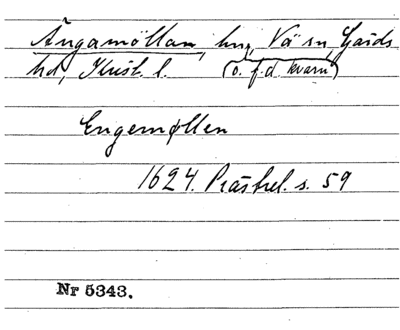 Ängamöllan, hmn, Vä sn, Gärds
hd, Krist. l. (o. f.d. kvarn)
Engemøllen
1624. Prästrel. s. 59
Nr 5343.